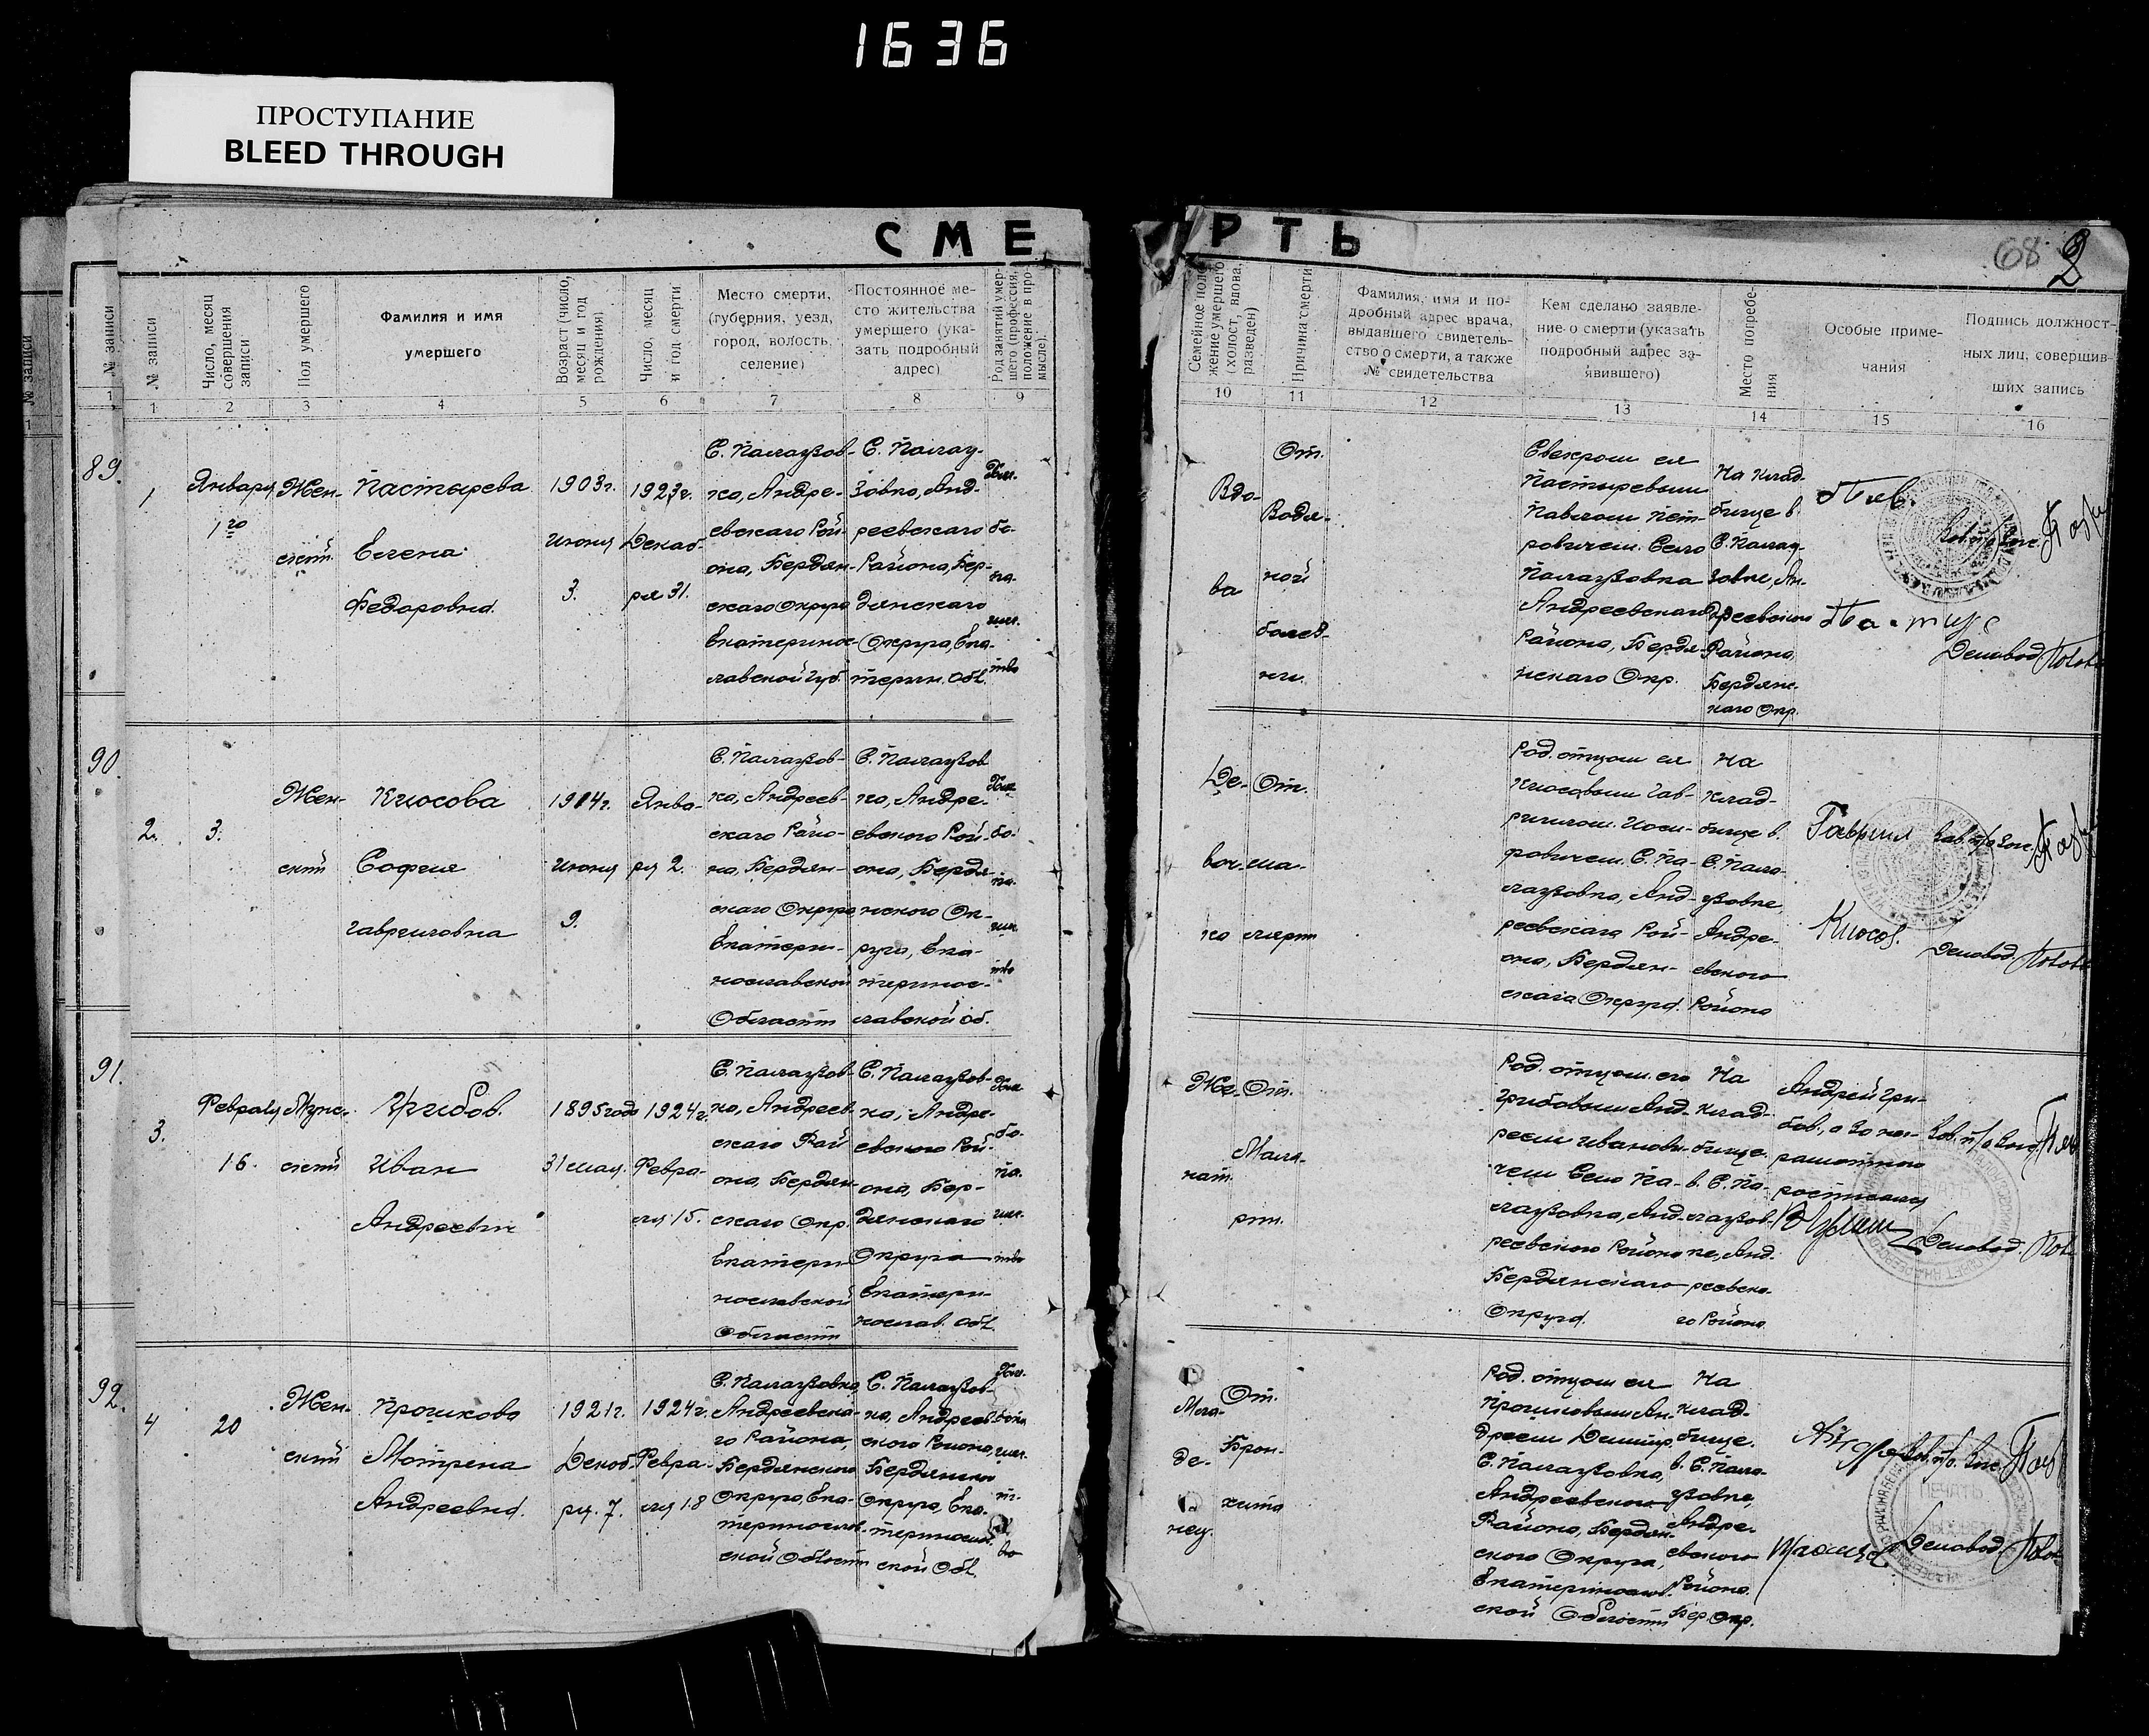 1636
ПРОСТУПАНИЕ
BLEED THROUGH
СМЕ
РТЬ
68 2
№ записи
№ записи
№ записи
Число, месяц совершения записи
Пол умершего
Фамилия и имя
умершего
Возраст (число, месяц и год рождения)
Число, месяц и год смерти
Место смерти,
(губерния, уезд,
город, волость,
селение)
Постоянное ме-
сто жительства
умершего (ука-
зать подробный
адрес)
Род занятий умер-
шего (профессия,
положение в про-
мысле).
Семейное поло-
жение умершего
(холост, вдова,
разведен)
Причина смерти
Фамилия, имя и по-
дробный адрес врача,
выдавшего свидетель-
ство о смерти, а также
№ свидетельства
Кем сделано заявле-
ние о смерти (указать
подробный адрес за-
явившего)
Место погребе-
ния
Особые приме-
чания
Подпись должност-
ных лиц, совершив-
ших запись
1
1
1 2 3 4 5 6 7 8 9
10 11 12 13 14 15 16
89.
1
Января
1го
Жен-
ский
Пастырева
Елена
Федоровна
1903г.
июня
3.
1923г.
Декаб-
ря 31.
С. Палаузов-
ка, Андре-
евскаго Рай-
она, Бердян-
скаго Округа
Екатеринос-
лавской Губ.
С. Палау-
зовка, Анд-
реевскаго
Района, Бер-
дянскаго
Округа, Ека-
терин. Обл.
Вдо-
ва
От
Водя-
ной
болез-
ни.
Свекром ея
Пастыревым
Павлом Пет-
ровичем. Село
Палаузовка
Андреевскаго
Района, Бердя-
нскаго Окр.
На клад-
бище в
С. Палау-
зовке, Ан-
дреевскаго
Района,
Бердянс-
каго Окр.
Деловод
90.
2.
3.
Жен-
ский
Клюсова
София
Гавриловна
1914г.
июня
9.
Янва-
ря 2.
С. Палаузов-
ка, Андреев-
скаго Райо-
на, Бердян-
скаго Округа
Екатери-
нославской
Области
С. Палаузов
ка, Андре-
евского Рай-
она, Бердя-
нского Ок-
руга, Ека-
теринос-
лавской Об.
Де-
воч-
ка
От
Род. отцом ея
Клюсовым Гав-
рилом Иоси-
фовичем. С. Па-
лаузовка, Анд-
реевскага Рай-
она, Бердян-
скага Округа.
На
клад-
бище в
С. Пала-
узовке,
Андре-
евского
Района
Гаврил
Клюсов.
Деловод.
91.
3.
Февраля
16.
Мужс-
ский
Грибов.
Иван
Андреевич
1895 года
31 мая.
1924г.
Февра-
ля 15.
С. Палаузов-
ка, Андреев-
скаго Рай
она, Бердян-
скаго Окр.
Екатери-
нославской
Области
С. Палаузов-
ка, Андре-
евского Рай-
она, Бер-
дянскаго
Округа
Екатери-
нослав. Обл.
Же-
нат.
От.
Маля-
рии.
Род. отцом его
Грибовым Анд-
реем Иванови-
чем Село Па-
лаузовка, Анд-
реевского Района
Бердянскаго
Округа.
На
клад-
бище
в. С. Па-
лаузов-
ке, Анд-
реевско-
го Района
Андрей Гри-
бов, а за не-
грамотного
Деловод.
92.
4
20
Жен-
ский
Прочикова
Мотрена
Андреевна.
1921г.
Декаб-
ря. 7.
1924г.
Февра-
ля 18
С. Палаузовка
Андреевска-
го Района,
Бердянского
Округа, Ека-
теринослав-
ской Области
С. Палаузов-
ка, Андреев-
ского Района,
Бердянского
Округа, Ека-
теринослав-
ской Обл.
Мла-
де-
нец.
От.
Брон-
хита
Род. отцом ея
Прочиковым Ан-
дреем Дмитр.
С. Палаузовка,
Андреевского
Района, Бердян-
ского Округа,
Екатеринослав-
ской Области
На
клад-
бище.
в. С. Пала-
узовке,
Андре-
евского
Района
Бер. Окр.
Деловод.
ПЕЧАТЬ